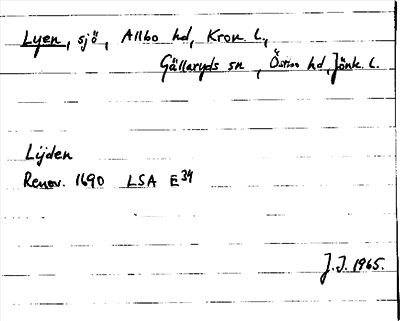 Lyen, sjö, Allbo hd, Kron. l.,
Gällaryds sn, Östbo hd, Jönk. l.
Lijden
Renov. 1690 LSA E34
J.J. 1965.